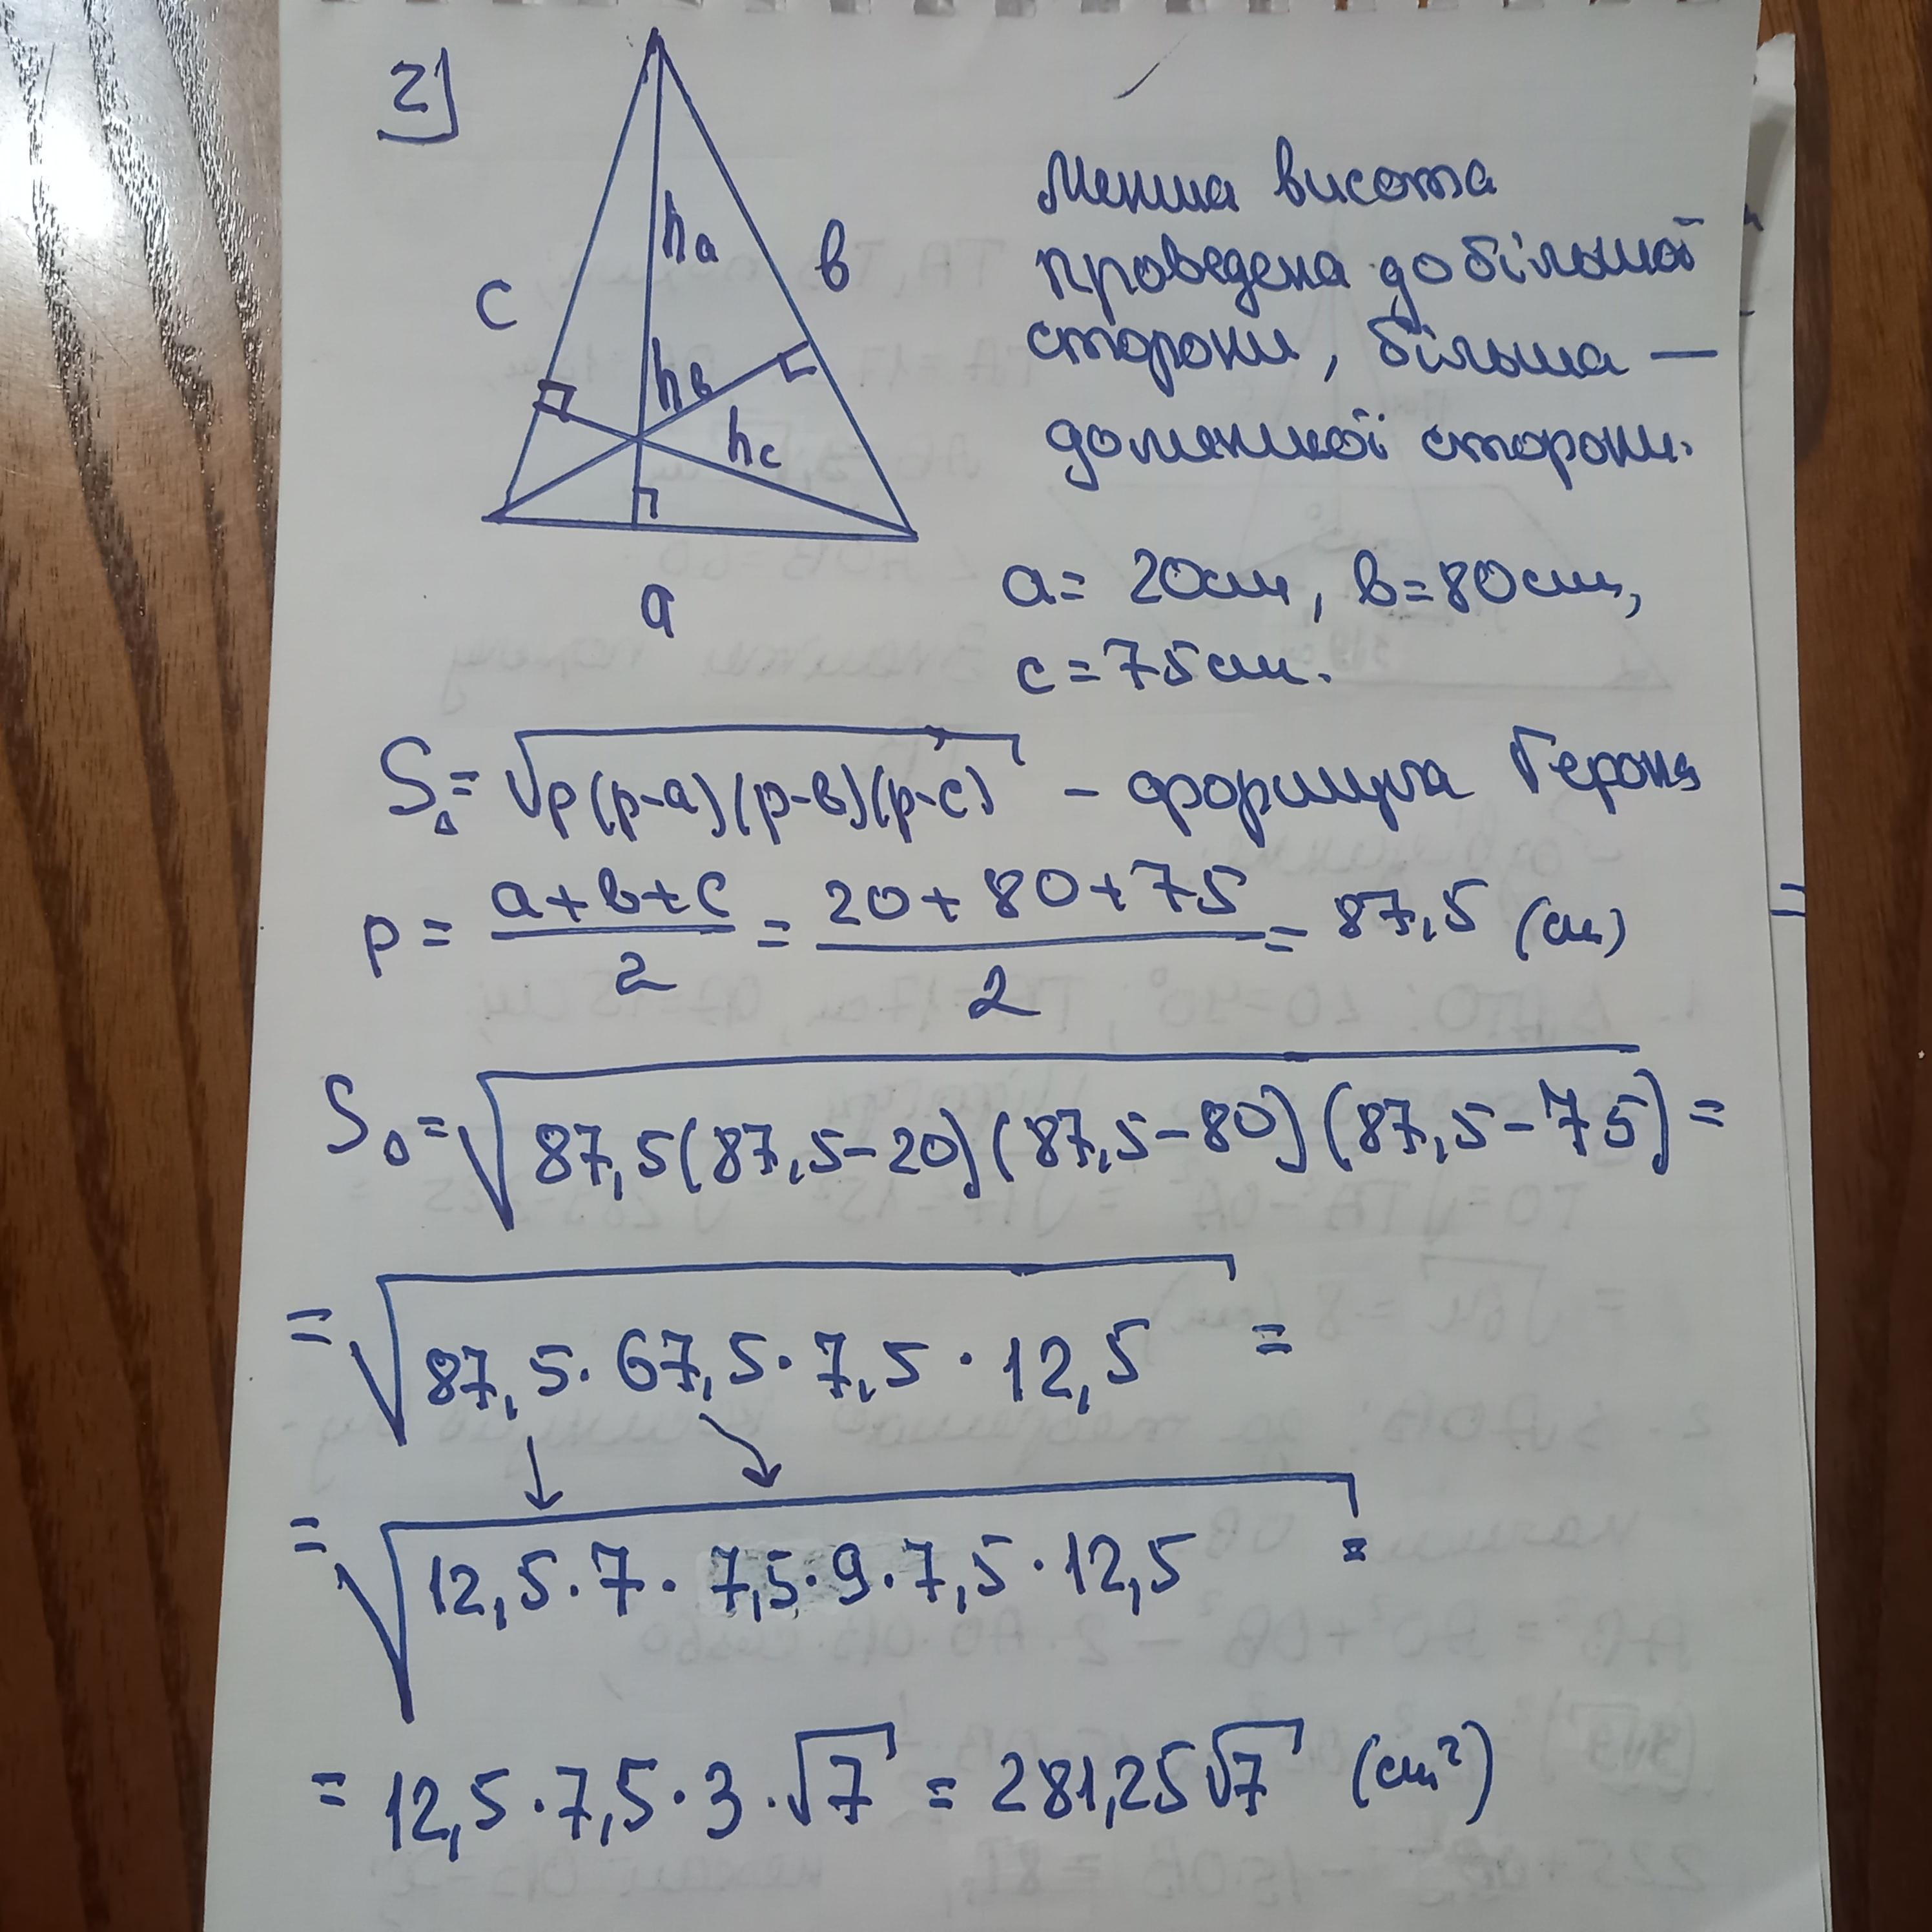 2)
c
hₐ
в
h_в
h_c
a
Менша висота
проведена до більшої
сторони, більша —
до меншої сторони.
a = 20см, в = 80см,
c = 75см.
S△ = √p(p-a)(p-в)(p-c) - формула Герона
p = (a+в+c)/2 = (20+80+75)/2 = 87,5 (см)
S△ = √87,5(87,5-20)(87,5-80)(87,5-75) =
= √87,5·67,5·7,5·12,5 =
= √12,5·7·7,5·9·7,5·12,5 =
= 12,5·7,5·3·√7 = 281,25√7 (см²)